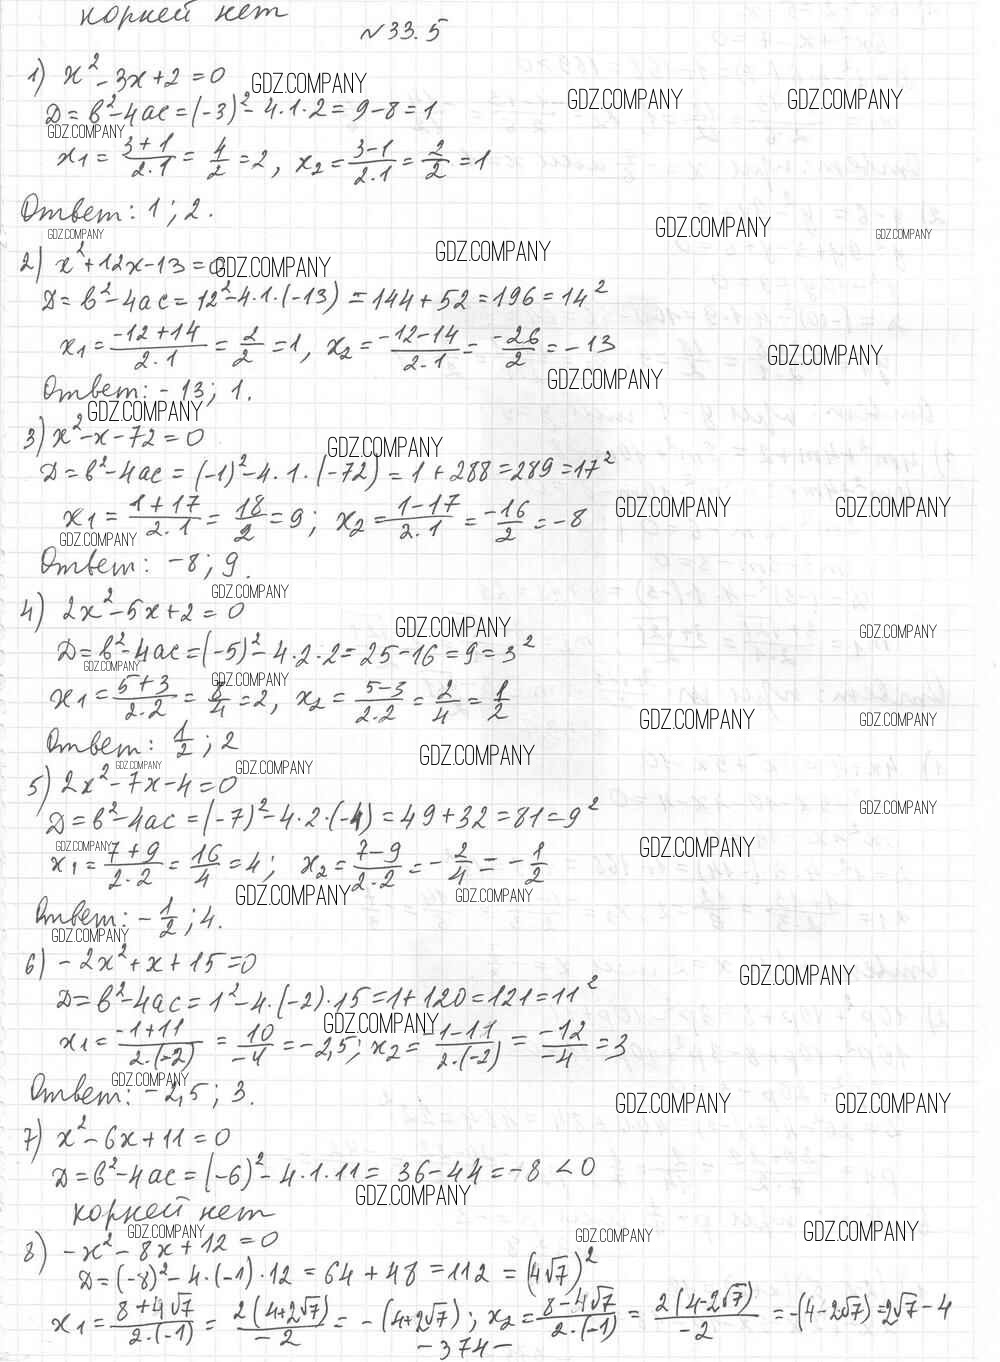 корней нет
№33.5
1) x² - 3x + 2 = 0
D = b² - 4ac = (-3)² - 4·1·2 = 9 - 8 = 1
x₁ = (3+1)/(2·1) = 4/2 = 2, x₂ = (3-1)/(2·1) = 2/2 = 1
Ответ: 1; 2.
2) x² + 12x - 13 = 0
D = b² - 4ac = 12² - 4·1·(-13) = 144 + 52 = 196 = 14²
x₁ = (-12+14)/(2·1) = 2/2 = 1, x₂ = (-12-14)/(2·1) = -26/2 = -13
Ответ: -13; 1.
3) x² - x - 72 = 0
D = b² - 4ac = (-1)² - 4·1·(-72) = 1 + 288 = 289 = 17²
x₁ = (1+17)/(2·1) = 18/2 = 9; x₂ = (1-17)/(2·1) = -16/2 = -8
Ответ: -8; 9.
4) 2x² - 5x + 2 = 0
D = b² - 4ac = (-5)² - 4·2·2 = 25 - 16 = 9 = 3²
x₁ = (5+3)/(2·2) = 8/4 = 2, x₂ = (5-3)/(2·2) = 2/4 = 1/2
Ответ: 1/2; 2
5) 2x² - 7x - 4 = 0
D = b² - 4ac = (-7)² - 4·2·(-4) = 49 + 32 = 81 = 9²
x₁ = (7+9)/(2·2) = 16/4 = 4; x₂ = (7-9)/(2·2) = -2/4 = -1/2
Ответ: -1/2; 4.
6) -2x² + x + 15 = 0
D = b² - 4ac = 1² - 4·(-2)·15 = 1 + 120 = 121 = 11²
x₁ = (-1+11)/(2·(-2)) = 10/-4 = -2,5; x₂ = (-1-11)/(2·(-2)) = -12/-4 = 3
Ответ: -2,5; 3.
7) x² - 6x + 11 = 0
D = b² - 4ac = (-6)² - 4·1·11 = 36 - 44 = -8 < 0
корней нет
8) -x² - 8x + 12 = 0
D = (-8)² - 4·(-1)·12 = 64 + 48 = 112 = (4√7)²
x₁ = (8+4√7)/(2·(-1)) = 2(4+2√7)/-2 = -(4+2√7); x₂ = (8-4√7)/(2·(-1)) = 2(4-2√7)/-2 = -(4-2√7) = 2√7 - 4
-374-